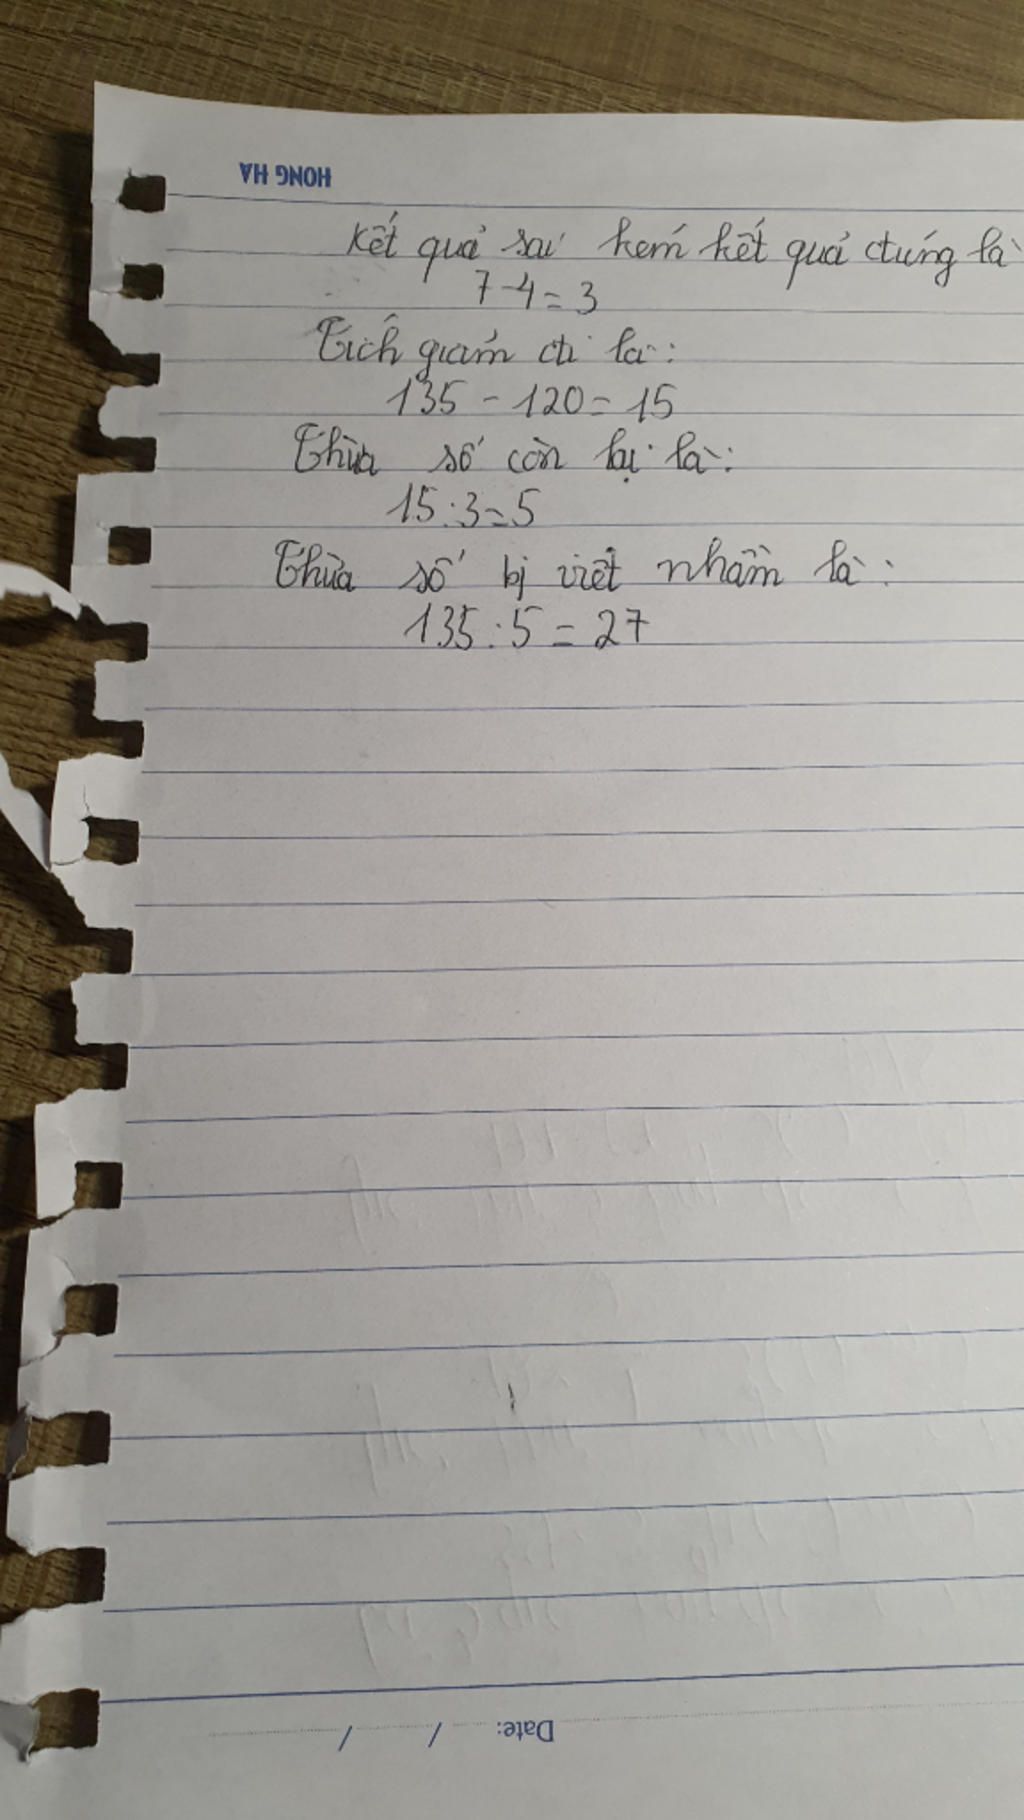 HONG HA
Kết quả sai kém kết quả đúng là
7-4=3
Tích giảm đi là:
135-120=15
Thừa số còn lại là:
15:3=5
Thừa số bị viết nhầm là:
135:5=27
Date: / /